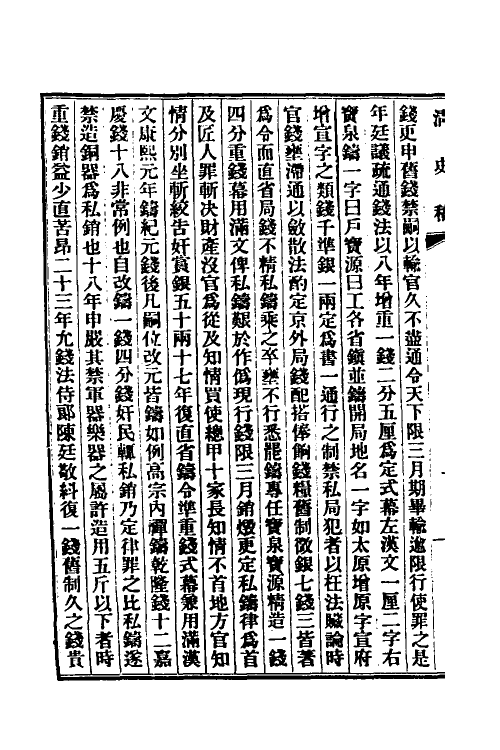 清史稿
錢更申舊錢禁嗣以輸官久不盡通令天下限三月期畢輸逾限行使罪之是
年廷議疏通錢法以八年增重一錢二分五厘爲定式幕左漢文一厘二字右
寶泉鑄一字曰戶寶源曰工各省鎭並鑄開局地名一字如太原增原字宣府
增宣字之類錢千準銀一兩定爲書一通行之制禁私局犯者以枉法贓論時
官錢壅滯通以斂散法酌定京外局錢配搭俸餉錢糧舊制徵銀七錢三皆著
爲令而直省局錢不精私鑄乘之卒壅不行悉罷鑄專任寶泉寶源精造一錢
四分重錢幕用滿文俾私鑄艱於作僞現行錢限三月銷燬更定私鑄律爲首
及匠人罪斬決財產沒官爲從及知情買使總甲十家長知情不首地方官知
情分別坐斬絞告奸賞銀五十兩十七年復直省鑄令準重錢式幕兼用滿漢
文康熙元年鑄紀元錢後凡嗣位改元皆鑄如例高宗內禪鑄乾隆錢十二嘉
慶錢十八非常例也自改鑄一錢四分錢奸民輒私銷乃定律罪之比私鑄遂
禁造銅器爲私銷也十八年申嚴其禁軍器樂器之屬許造用五斤以下者時
重錢銷益少直苦昂二十三年允錢法侍郞陳廷敬科復一錢舊制久之錢貴